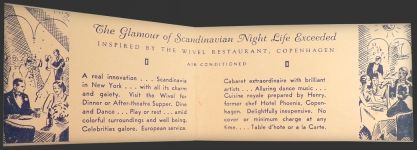 The Glamour of Scandinavian Night Life Exceeded
INSPIRED BY THE WIVEL RESTAURANT, COPENHAGEN
AIR CONDITIONED
A real innovation . . . Scandinavia
in New York . . . with all its charm
and gaiety. Visit the Wivel for
Dinner or After-theatre Supper. Dine
and Dance . . . Play or rest . . . amid
colorful surroundings and well being.
Celebrities galore. European service.
Cabaret extraordinaire with brilliant
artists . . . Alluring dance music . . .
Cuisine royale prepared by Henry,
former chef Hotel Phoenix, Copen-
hagen. Delightfully inexpensive. No
cover or minimum charge at any
time. . . . Table d'hote or a la Carte.